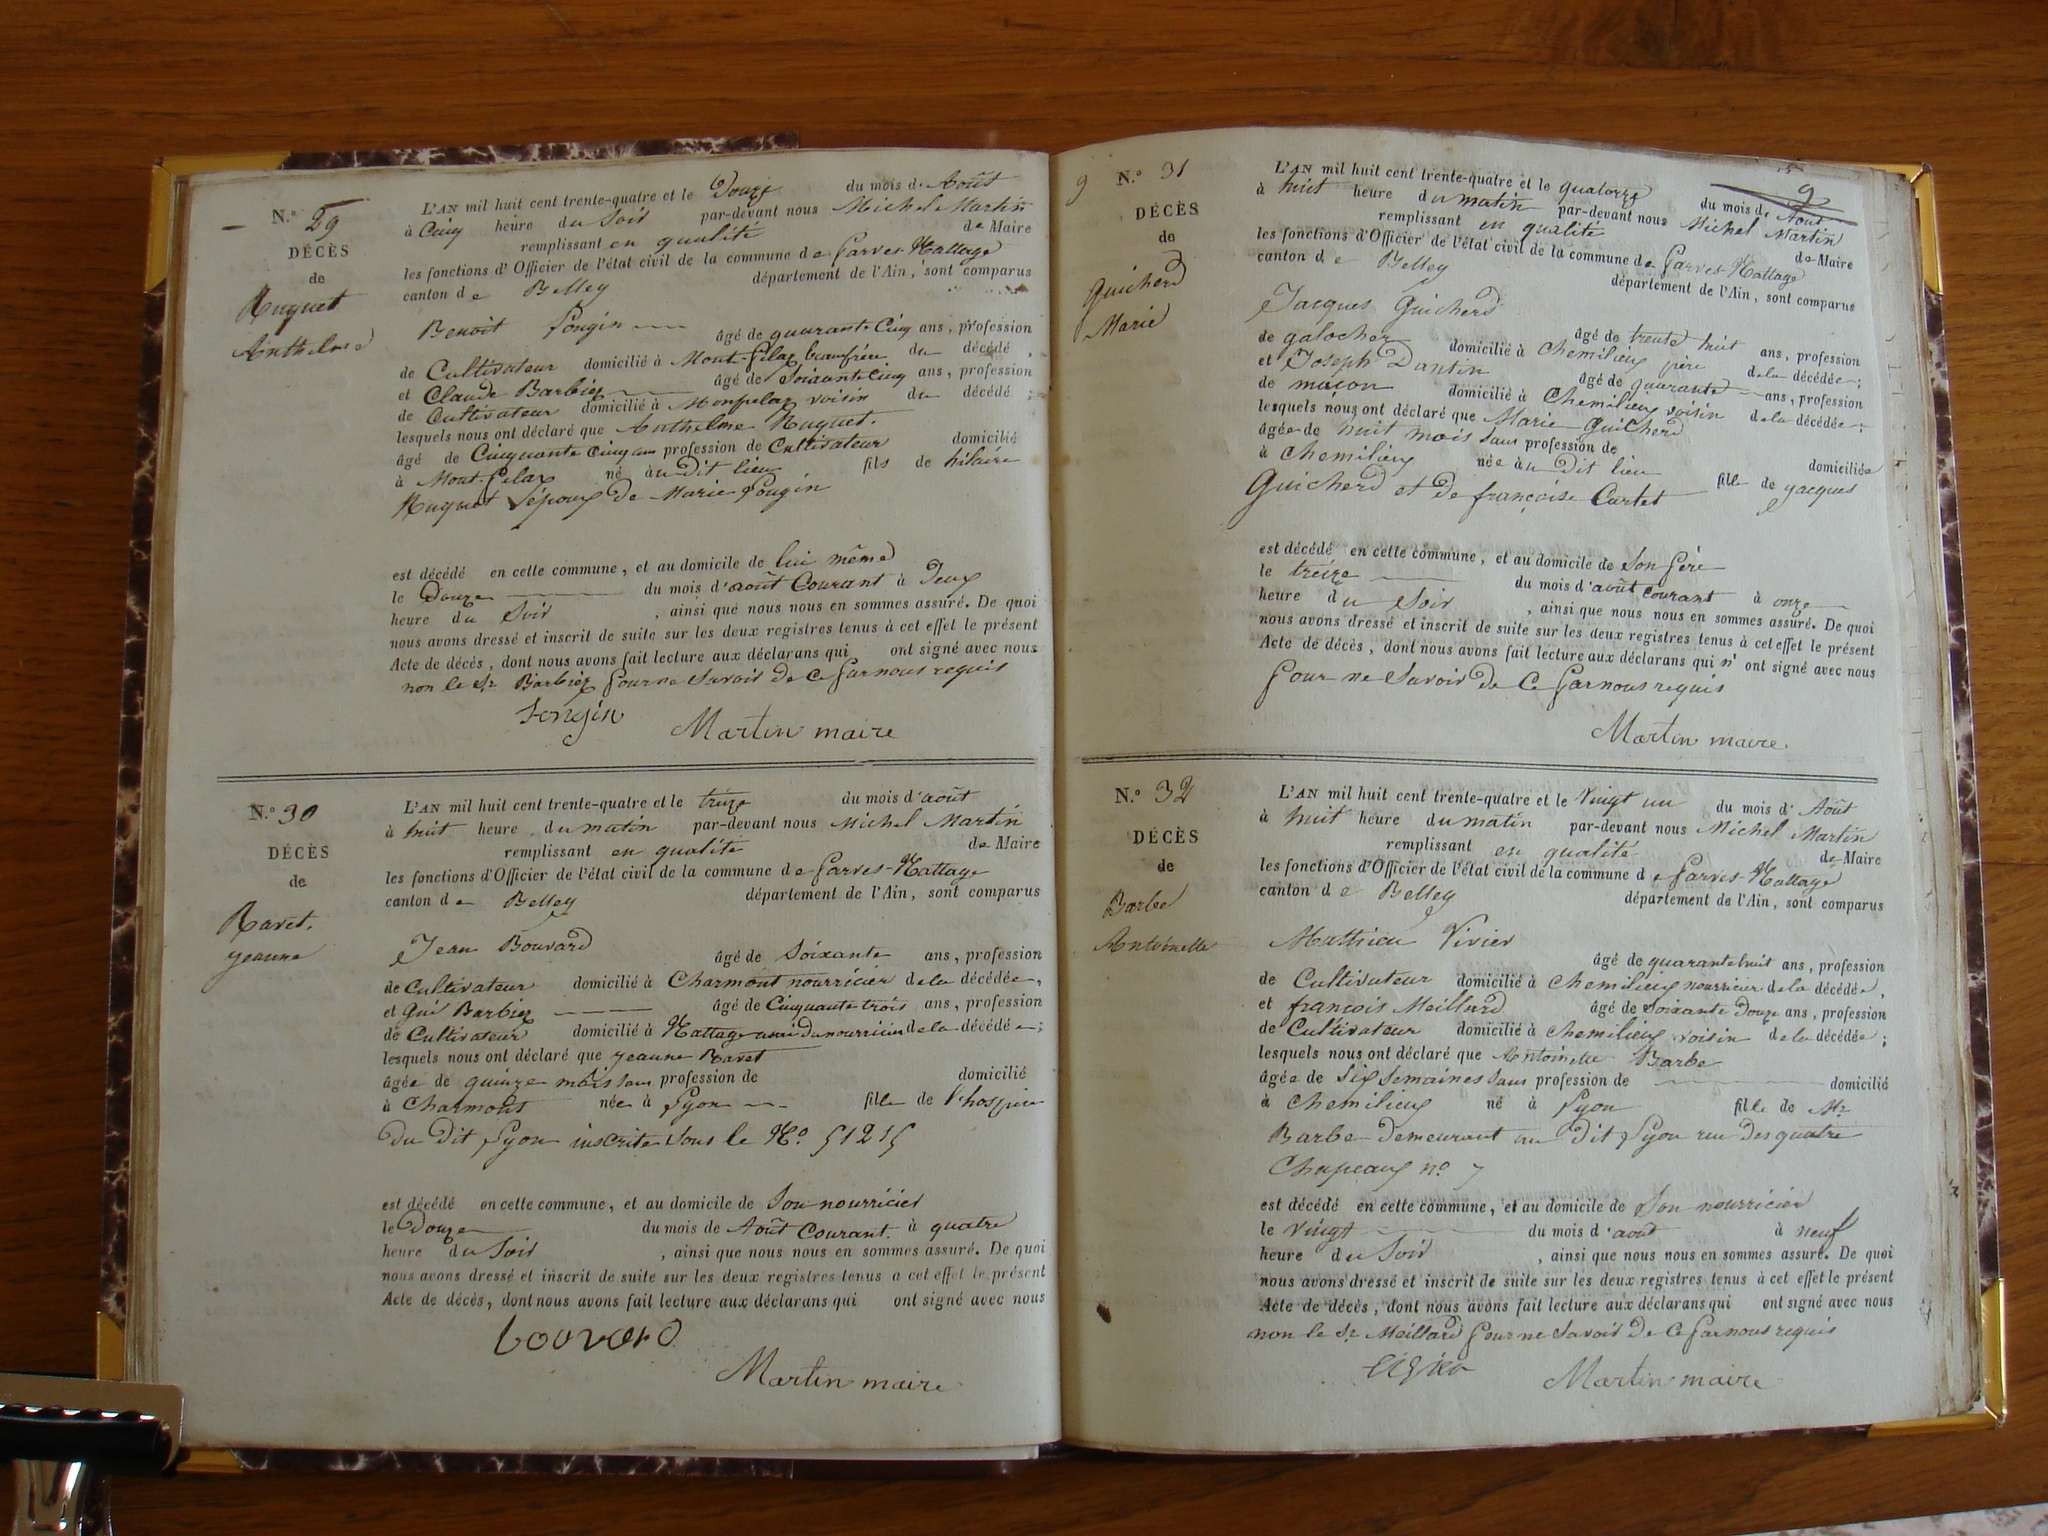 N.º 29
DÉCÈS
de
Huguet
Anthelme
L'AN mil huit cent trente-quatre et le Douze du mois de Août
à Cinq heure du Soir par-devant nous Michel Martin
remplissant en qualité de Maire
les fonctions d'Officier de l'état civil de la commune de Parves-Nattage
canton de Belley département de l'Ain, sont comparus
Benoit Pongin âgé de quarante Cinq ans, profession
de Cultivateur domicilié à Mont-Pelaz beaufrère du décédé,
et Claude Barbier âgé de Soixante Cinq ans, profession
de Cultivateur domicilié à Monpelaz voisin du décédé;
lesquels nous ont déclaré que Anthelme Huguet.
âgé de Cinquante Cinq ans profession de Cultivateur domicilié
à Mont-Pelaz né au Dit lieu fils de hilaire
Huguet L'époux de Marie Pongin
est décédé en cette commune, et au domicile de lui même
le Douze du mois d'août Courant à Deux
heure du Soir, ainsi que nous nous en sommes assuré. De quoi
nous avons dressé et inscrit de suite sur les deux registres tenus à cet effet le présent
Acte de décès, dont nous avons fait lecture aux déclarans qui ont signé avec nous
non le Sr Barbier pour ne Savoir de Ce par nous requis
Pongin
Martin maire
N.º 30
DÉCÈS
de
Ravet.
yeanne
L'AN mil huit cent trente-quatre et le treize du mois d'août
à huit heure du matin par-devant nous Michel Martin
remplissant en qualité de Maire
les fonctions d'Officier de l'état civil de la commune de Parves-Nattage
canton de Belley département de l'Ain, sont comparus
Jean Bouvard âgé de Soixante ans, profession
de Cultivateur domicilié à Charmont nourricier de la décédée,
et Gui Barbier âgé de Cinquante trois ans, profession
de Cultivateur domicilié à Nattage ami du nourricier de la décédée;
lesquels nous ont déclaré que yeanne Ravet
âgée de quinze mois Sans profession de domicilié
à Charmont née à Lyon fille de l'hospice
Du Dit Lyon inscrite Sous le No 51215
est décédé en cette commune, et au domicile de Son nourricier
le Douze du mois de Août Courant. à quatre
heure du Soir, ainsi que nous nous en sommes assuré. De quoi
nous avons dressé et inscrit de suite sur les deux registres tenus a cet effet le présent
Acte de décès, dont nous avons fait lecture aux déclarans qui ont signé avec nous
bouvard
Martin maire
9
9
N.º 31
DÉCÈS
de
Guicherd
Marie
L'AN mil huit cent trente-quatre et le quatorze du mois de Août
à huit heure du matin par-devant nous Michel Martin
remplissant en qualité de Maire
les fonctions d'Officier de l'état civil de la commune de Parves-Nattage
canton de Belley département de l'Ain, sont comparus
Jacques Guicherd âgé de trente huit ans, profession
de galocher domicilié à Chemilieu père de la décédée;
et Joseph Dantin âgé de quarante ans, profession
de maçon domicilié à Chemilieu voisin de la décédée;
lesquels nous ont déclaré que Marie Guicherd
âgée de huit mois Sans profession de domiciliée
à Chemilieu née au Dit lieu fille de yacques
Guicherd et de françoise Curtet
est décédé en cette commune, et au domicile de Son Père
le treize du mois d'août courant à onze
heure du Soir, ainsi que nous nous en sommes assuré. De quoi
nous avons dressé et inscrit de suite sur les deux registres tenus à cet effet le présent
Acte de décès, dont nous avons fait lecture aux déclarans qui n'ont signé avec nous
pour ne Savoir de Ce par nous requis
Martin maire
N.º 32
DÉCÈS
de
Barbe
Antoinette
L'AN mil huit cent trente-quatre et le Vingt un du mois d'Août
à huit heure du matin par-devant nous Michel Martin
remplissant en qualité de Maire
les fonctions d'Officier de l'état civil de la commune de Parves-Nattage
canton de Belley département de l'Ain, sont comparus
Mathieu Vivier âgé de quarante huit ans, profession
de Cultivateur domicilié à Chemilieu nourricier de la décédée,
et françois Meillard âgé de Soixante Douze ans, profession
de Cultivateur domicilié à Chemilieu voisin de la décédée;
lesquels nous ont déclaré que Antoinette Barbe
âgée de Six Semaines Sans profession de domicilié
à Chemilieu né à Lyon fille de Mr
Barbe Demeurant au Dit Lyon rue Des quatre
Chapeaux no 7
est décédé en cette commune, et au domicile de Son nourricier
le vingt du mois d'aout à neuf
heure du Soir, ainsi que nous nous en sommes assuré. De quoi
nous avons dressé et inscrit de suite sur les deux registres tenus à cet effet le présent
Acte de décès, dont nous avons fait lecture aux déclarans qui ont signé avec nous
non le Sr Meillard pour ne Savoir De Ce par nous requis
Martin maire